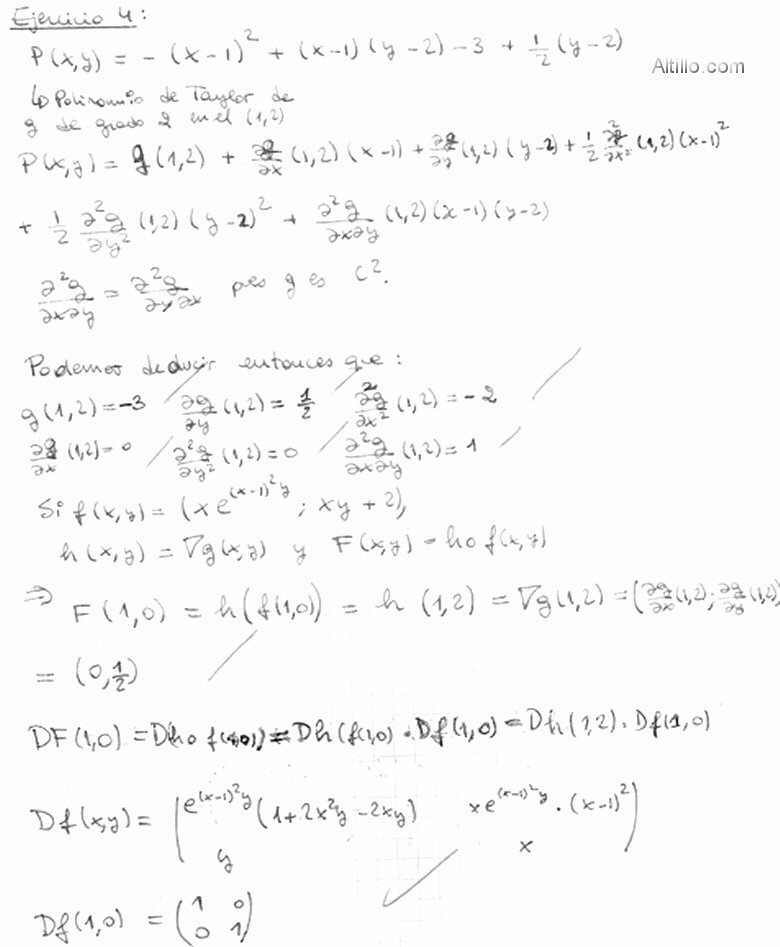 Ejercicio 4:
P(x,y) = - (x-1)² + (x-1)(y-2) - 3 + 1/2 (y-2)
Altillo.com
↳ Polinomio de Taylor de
g de grado 2 en el (1,2)
P(x,y) = g(1,2) + ∂g/∂x (1,2)(x-1) + ∂g/∂y (1,2)(y-2) + 1/2 ∂²g/∂x² (1,2)(x-1)²
+ 1/2 ∂²g/∂y² (1,2)(y-2)² + ∂²g/∂x∂y (1,2)(x-1)(y-2)
∂²g/∂x∂y = ∂²g/∂y∂x pues g es C².
Podemos deducir entonces que:
g(1,2) = -3 ∂g/∂y (1,2) = 1/2 ∂²g/∂x² (1,2) = -2
∂g/∂x (1,2) = 0 ∂²g/∂y² (1,2) = 0 ∂²g/∂x∂y (1,2) = 1
Si f(x,y) = (x e^{(x-1)²y} ; xy + 2),
h(x,y) = ∇g(x,y) y F(x,y) = h∘f(x,y)
⇒ F(1,0) = h(f(1,0)) = h(1,2) = ∇g(1,2) = (∂g/∂x (1,2); ∂g/∂y (1,2))
= (0, 1/2)
DF(1,0) = Dh∘f(1,0) = Dh(f(1,0)) · Df(1,0) = Dh(1,2) · Df(1,0)
Df(x,y) = ( e^{(x-1)²y} (1 + 2x²y - 2xy) x e^{(x-1)²y} · (x-1)²
y x )
Df(1,0) = ( 1 0
0 1 )